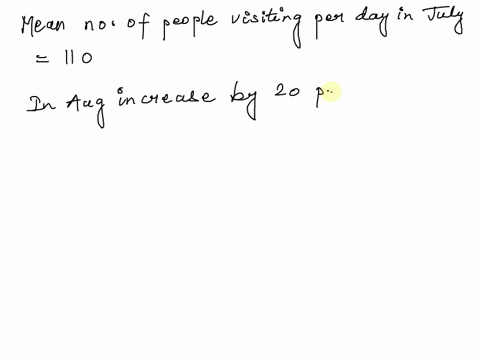 Mean no. of people visiting per day in July
= 110
In Aug increase by 20 p